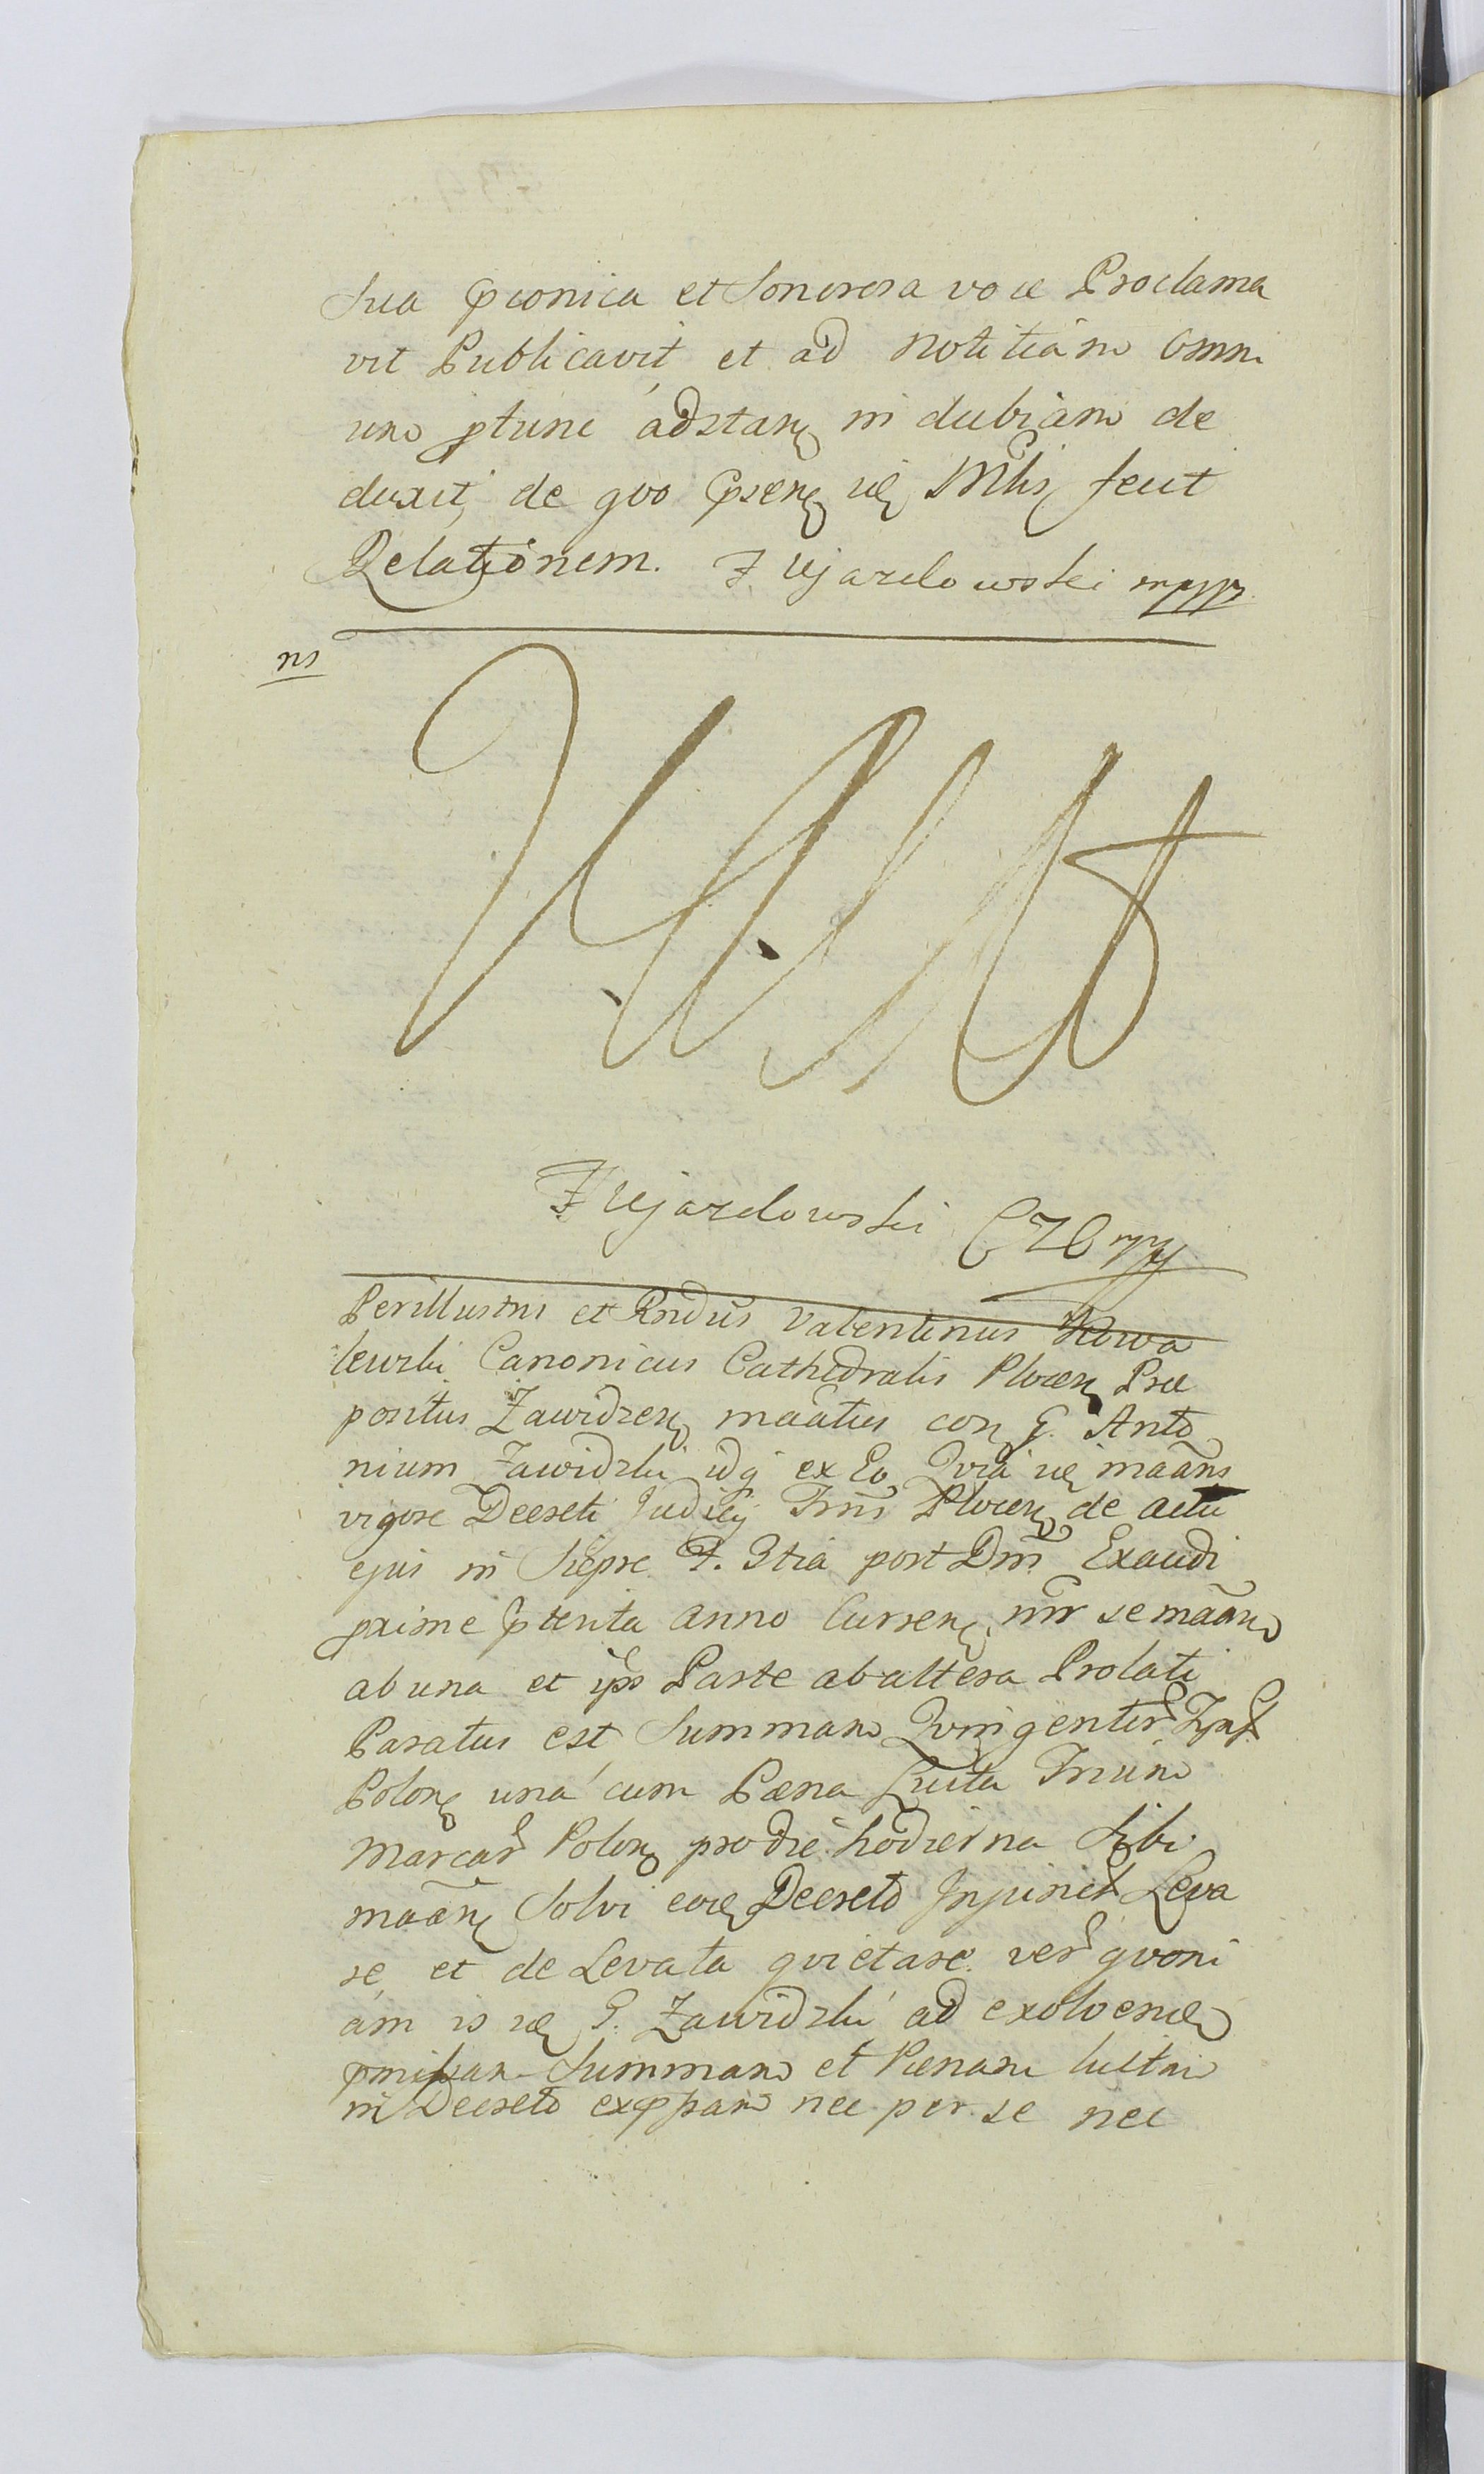 Sua pconica et Sonorosa voce Proclama
vit Publicavit et ad notitiam omni
um ptunc adstan indubiam de
duxit, de quo psens id Mlis fecit
Relationem. F Ujazdowski mppr
ns
F Ujazdowski
Perillustris et Rndus Valentinus Kowa
lewski Canonicus Cathedralis Plocen Præ
positus Zawidzen maatus con G. Anto
nium Zawidzki idq ex Eo Quia id maans
vigore Decreti Judicy Trris Plocen de actu
ejus in Sieprc F. 3tia post Dm Exaudi
pxime pterita anno Curren inr se maan
ab una et ips Parte ab altera Prolati
Paratus est Summam Quingentor
Polon una cum Pæna Luita Trium
Marcar Polon prodie hodierna Sibi
maan Solvi eod Decreto Injunct Leva
re, et de Levata quietare. ver quoni
am is id G. Zawidzki ad exolvend
pmissam Summam et Pænam luitam
in Decreto exppssam nec per se nec